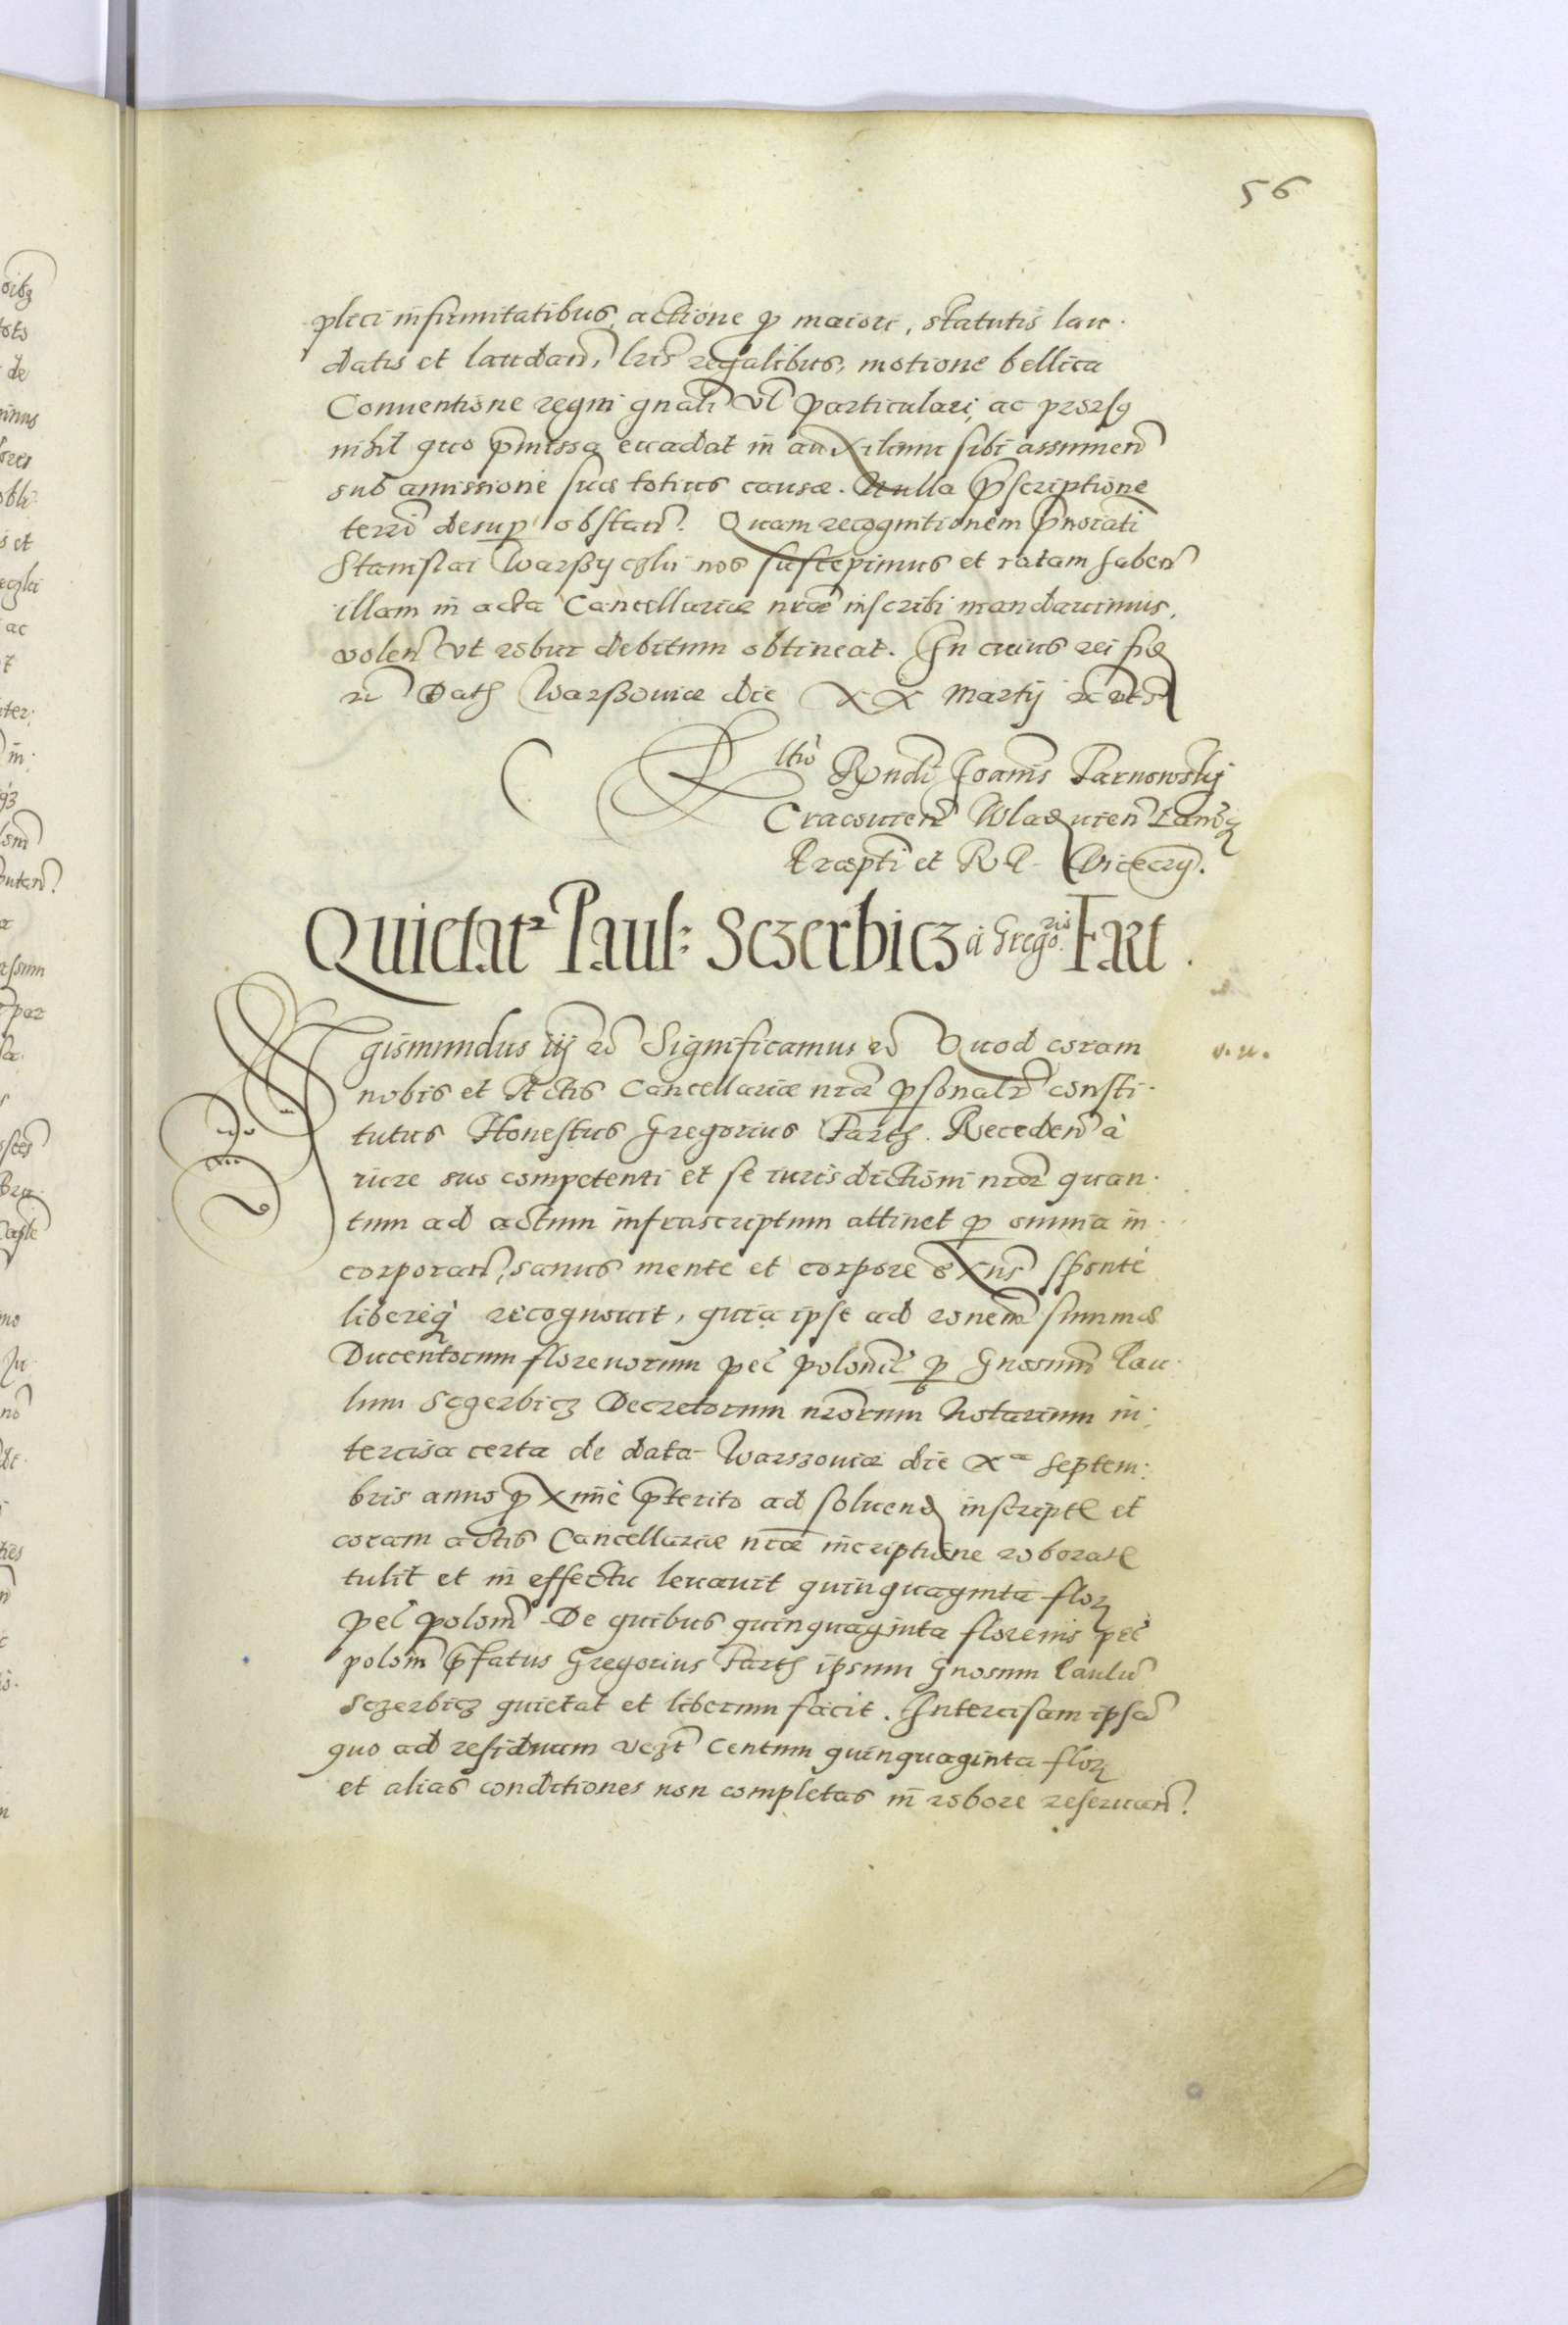 56
plici infirmitatibus, actione p maiori, statutis lau-
datis et laudan, lris regalibus, motione bellica
Conuentione regni gnali vl particulari, ac prorsq
nihil quo pmissa euadat in auxilium sibi assumen
sub amissione suæ totius causæ. Nulla pscriptione
terri desup obstan. Quam recognitionem pnotati
Stanislai Warßyczkii nos suscepimus et ratam haben
illam in acta Cancellariæ nræ inscribi mandauimus,
volen vt robur debitum obtineat. In cuius rei fid
rc Dat Warßouiæ die XX Martij rc vts
Rltio Rndi Joanis Tarnowskij
Cracouien Wladuien Lancz
Præpti et R P Vicecry.
Quietatr Paul: Sczerbicz à Gregoris Fart.
Sigismundus iij rc Significamus rc Quod coram
nobis et Actis Cancellariæ nræ psonalr consti-
tutus Honestus Gregorius Farth. Receden à
iure suo competenti et se iurisdictioni nræ quan-
tum ad actum infrascriptum attinet p omnia in-
corporan, sanus mente et corpore exns sponte
libereq recognouit, quia ipse ad ronem summæ
Ducentorum florenorum pec polonic p Gnosum Pau-
lum Sczerbicz Decretorum nrorum Notarium in-
tercisa certa de data Warszouiæ die Xa Septem-
bris anno pxime pterito ad soluend inscript et
coram actis Cancellariæ nræ incriptione roborat
tulit et in effectu leuauit quinquaginta flor
pec polon De quibus quinquaginta florenis pec
polon pfatus Gregorius Farth ipsum Gnosum Paulu
Sczerbicz quietat et liberum facit. Intercisam ipsa
quo ad residuam vezt centum quinquaginta flor
et alias conditiones non completas in robore reseruan.